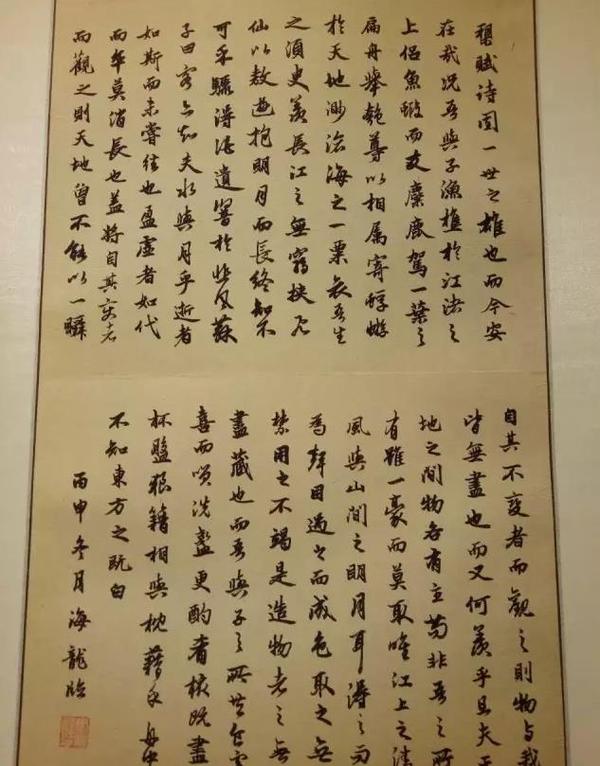 槊賦诗固一世之雄也而今安
在哉况吾與子漁樵於江渚之
上侶魚蝦而友麋鹿駕一葉之
扁舟舉匏尊以相属寄蜉蝣
於天地渺滄海之一粟哀吾生
之須臾羨長江之無窮挟飛
仙以敖遊抱明月而長終知不
可乎驟得託遺響於悲風蘇
子曰客亦知夫水與月乎逝者
如斯而未嘗往也盈虚者如代
而卒莫消長也盖將自其變者
而觀之則天地曾不能以一瞬
自其不變者而觀之則物與我
皆無盡也而又何羨乎且夫天
地之間物各有主苟非吾之所
有雖一豪而莫取唯江上之清
風與山間之明月耳得之而
為聲目遇之而成色取之無
禁用之不竭是造物者之無
盡藏也而吾與子之所共食客
喜而笑洗盞更酌肴核既盡
杯盤狼籍相與枕藉乎舟中
不知東方之既白
丙申冬月海龍临